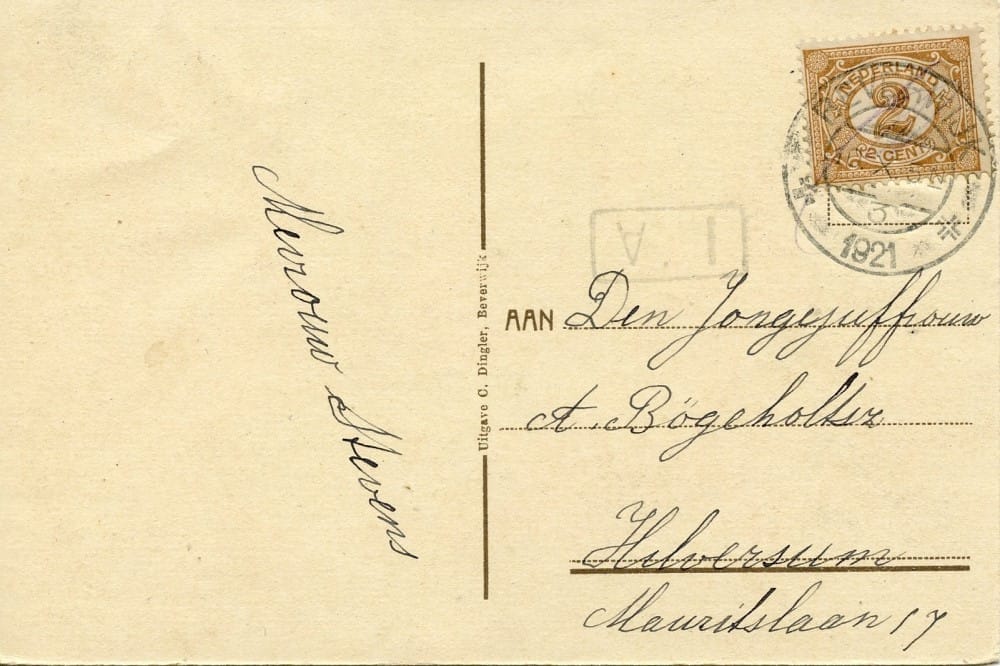 NEDERLAND
2
2 CENT
1921
I A
Mevrouw Stevens
Uitgave C. Dingler, Beverwijk
AAN Den Jongejuffrouw
A. Bögeholtsz
Hilversum
Mauritslaan 17